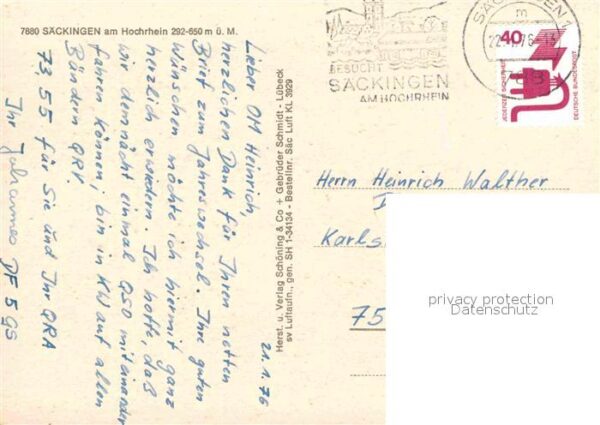 7880 SÄCKINGEN am Hochrhein 292-650 m ü. M.
21.1.76
Lieber OM Heinrich,
herzlichen Dank für Ihren netten
Brief zum Jahreswechsel. Ihre guten
Wünschen möchte ich hiermit ganz
herzlich erwiedern. Ich hoffe, daß
wir demnächst einmal QSO miteinander
fahren können, bin in KW auf allen
Bändern QRV.
73, 55 für Sie und Ihr QRA
Ihr Johannes DF 5 GS
Herst. u. Verlag Schöning & Co + Gebrüder Schmidt - Lübeck
sv Luftaufn., gen. SH 1-34134 - Bestellnr. Säc Luft KL 3929
BESUCHT
SÄCKINGEN
AM HOCHRHEIN
SÄCKINGEN 1
m
40
JEDERZEIT SICHERHEIT
DEUTSCHE BUNDESPOST
Herrn Heinrich Walther
Karls
75
privacy protection
Datenschutz